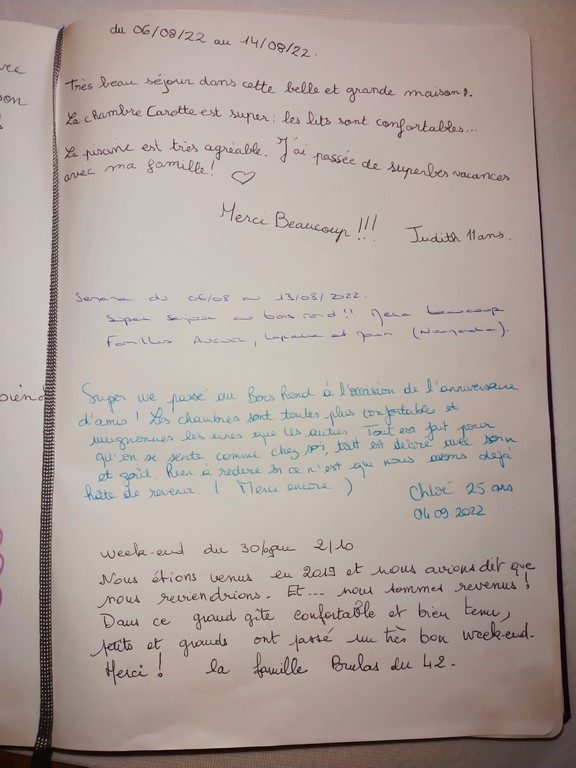 du 06/08/22 au 14/08/22.
Très beau séjour dans cette belle et grande maison.
La chambre Carotte est super: les lits sont confortables...
La piscine est très agréable. J'ai passée de superbes vacances
avec ma famille! ♡
Merci Beaucoup!!!
Judith 11ans.
Semaine du 06/08 au 13/08/2022.
Super séjour au bois rond!! Merci beaucoup
Familles
Super we passé au Bois Rond à l'occasion de l'anniversaire
d'amis! Les chambres sont toutes plus confortable et
mignonnes les unes que les autres. Tout est fait pour
qu'on se sente comme chez soi, tout est décoré avec soin
et goût. Rien à redire si ce n'est que nous avons déjà
hâte de revenir! Merci encore)
Chloé 25 ans
04 09 2022
week-end du 30/09 au 2/10
Nous étions venus en 2019 et nous avions dit que
nous reviendrions. Et... nous sommes revenus!
Dans ce grand gîte confortable et bien tenu,
petits et grands ont passé un très bon week-end.
Merci! la famille du 42.